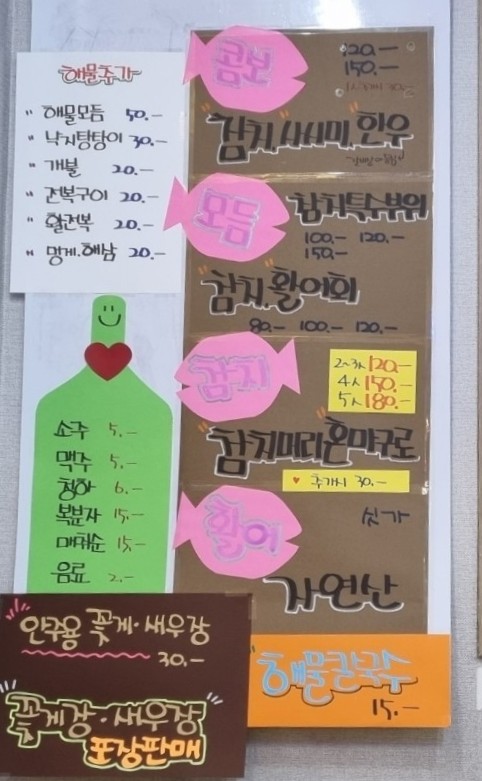 해물추가
" 해물모듬 50.-
" 낙지탕탕이 30.-
" 개불 20.-
" 전복구이 20.-
" 활전복 20.-
" 멍게.해삼 20.-
소주 5.-
맥주 5.-
청하 6.-
복분자 15.-
매취순 15.-
음료 2.-
안주용 꽃게·새우장
30.-
꽃게장·새우장
포장판매
콤보
120.-
150.-
"참치, "사시미, "한우
모듬
참치특수부위
100.- 120.-
150.-
"참치, "활어회
80.- 100.- 120.-
참치
2~3人 120.-
4人 150.-
5人 180.-
"참치머리"혼마구로
♥ 추가시 30.-
활어
싯가
자연산
해물칼국수
15.-